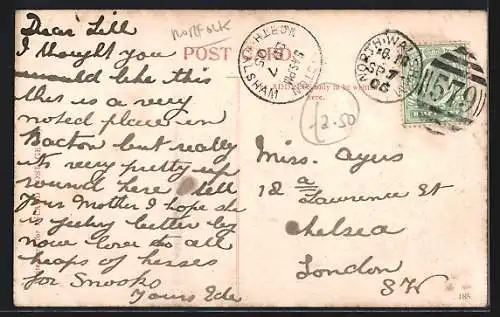 Dear Lill
I thought you
would like this
this is a very
noted place in
Bacton but really
its very pretty up
round here tell
your Mother I hope she
is feeling better by
now love to all
heaps of kisses
for Snooks
Yours Ede
norfolk
POST CARD
NORTH WALSHAM
SP 7
05
NORTH WALSHAM
SP 7
05
579
ADDRESS only to be written
here.
12.50
Miss. Ayers
12 a Lawrence St
Chelsea
London
SW
185